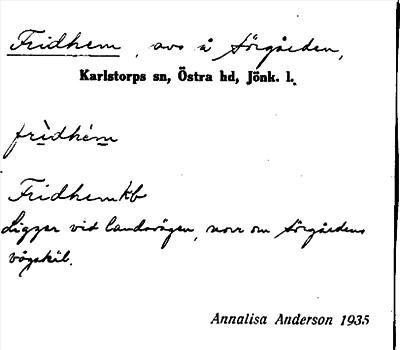 Fridhem, avs å Sörgården,
Karlstorps sn, Östra hd, Jönk. l.
frìdhém
Fridhem kb
Ligger vid landsvägen, norr om Sörgårdens
vägskäl.
Annalisa Anderson 1935